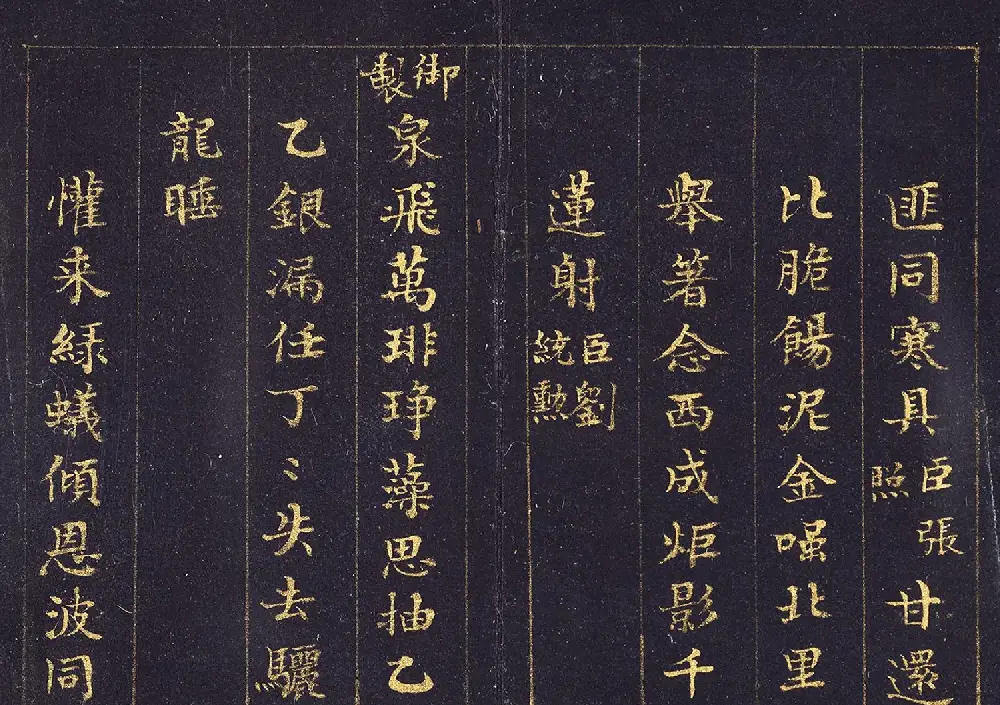 匪同寒具臣張照甘還
比脆餳泥金嗤北里
舉著念西成炬影千
蓮射臣劉統勳
御製泉飛萬琲琤藻思抽乙
乙銀漏任丁〻失去驪
龍睡
懽来綠蟻傾恩波同